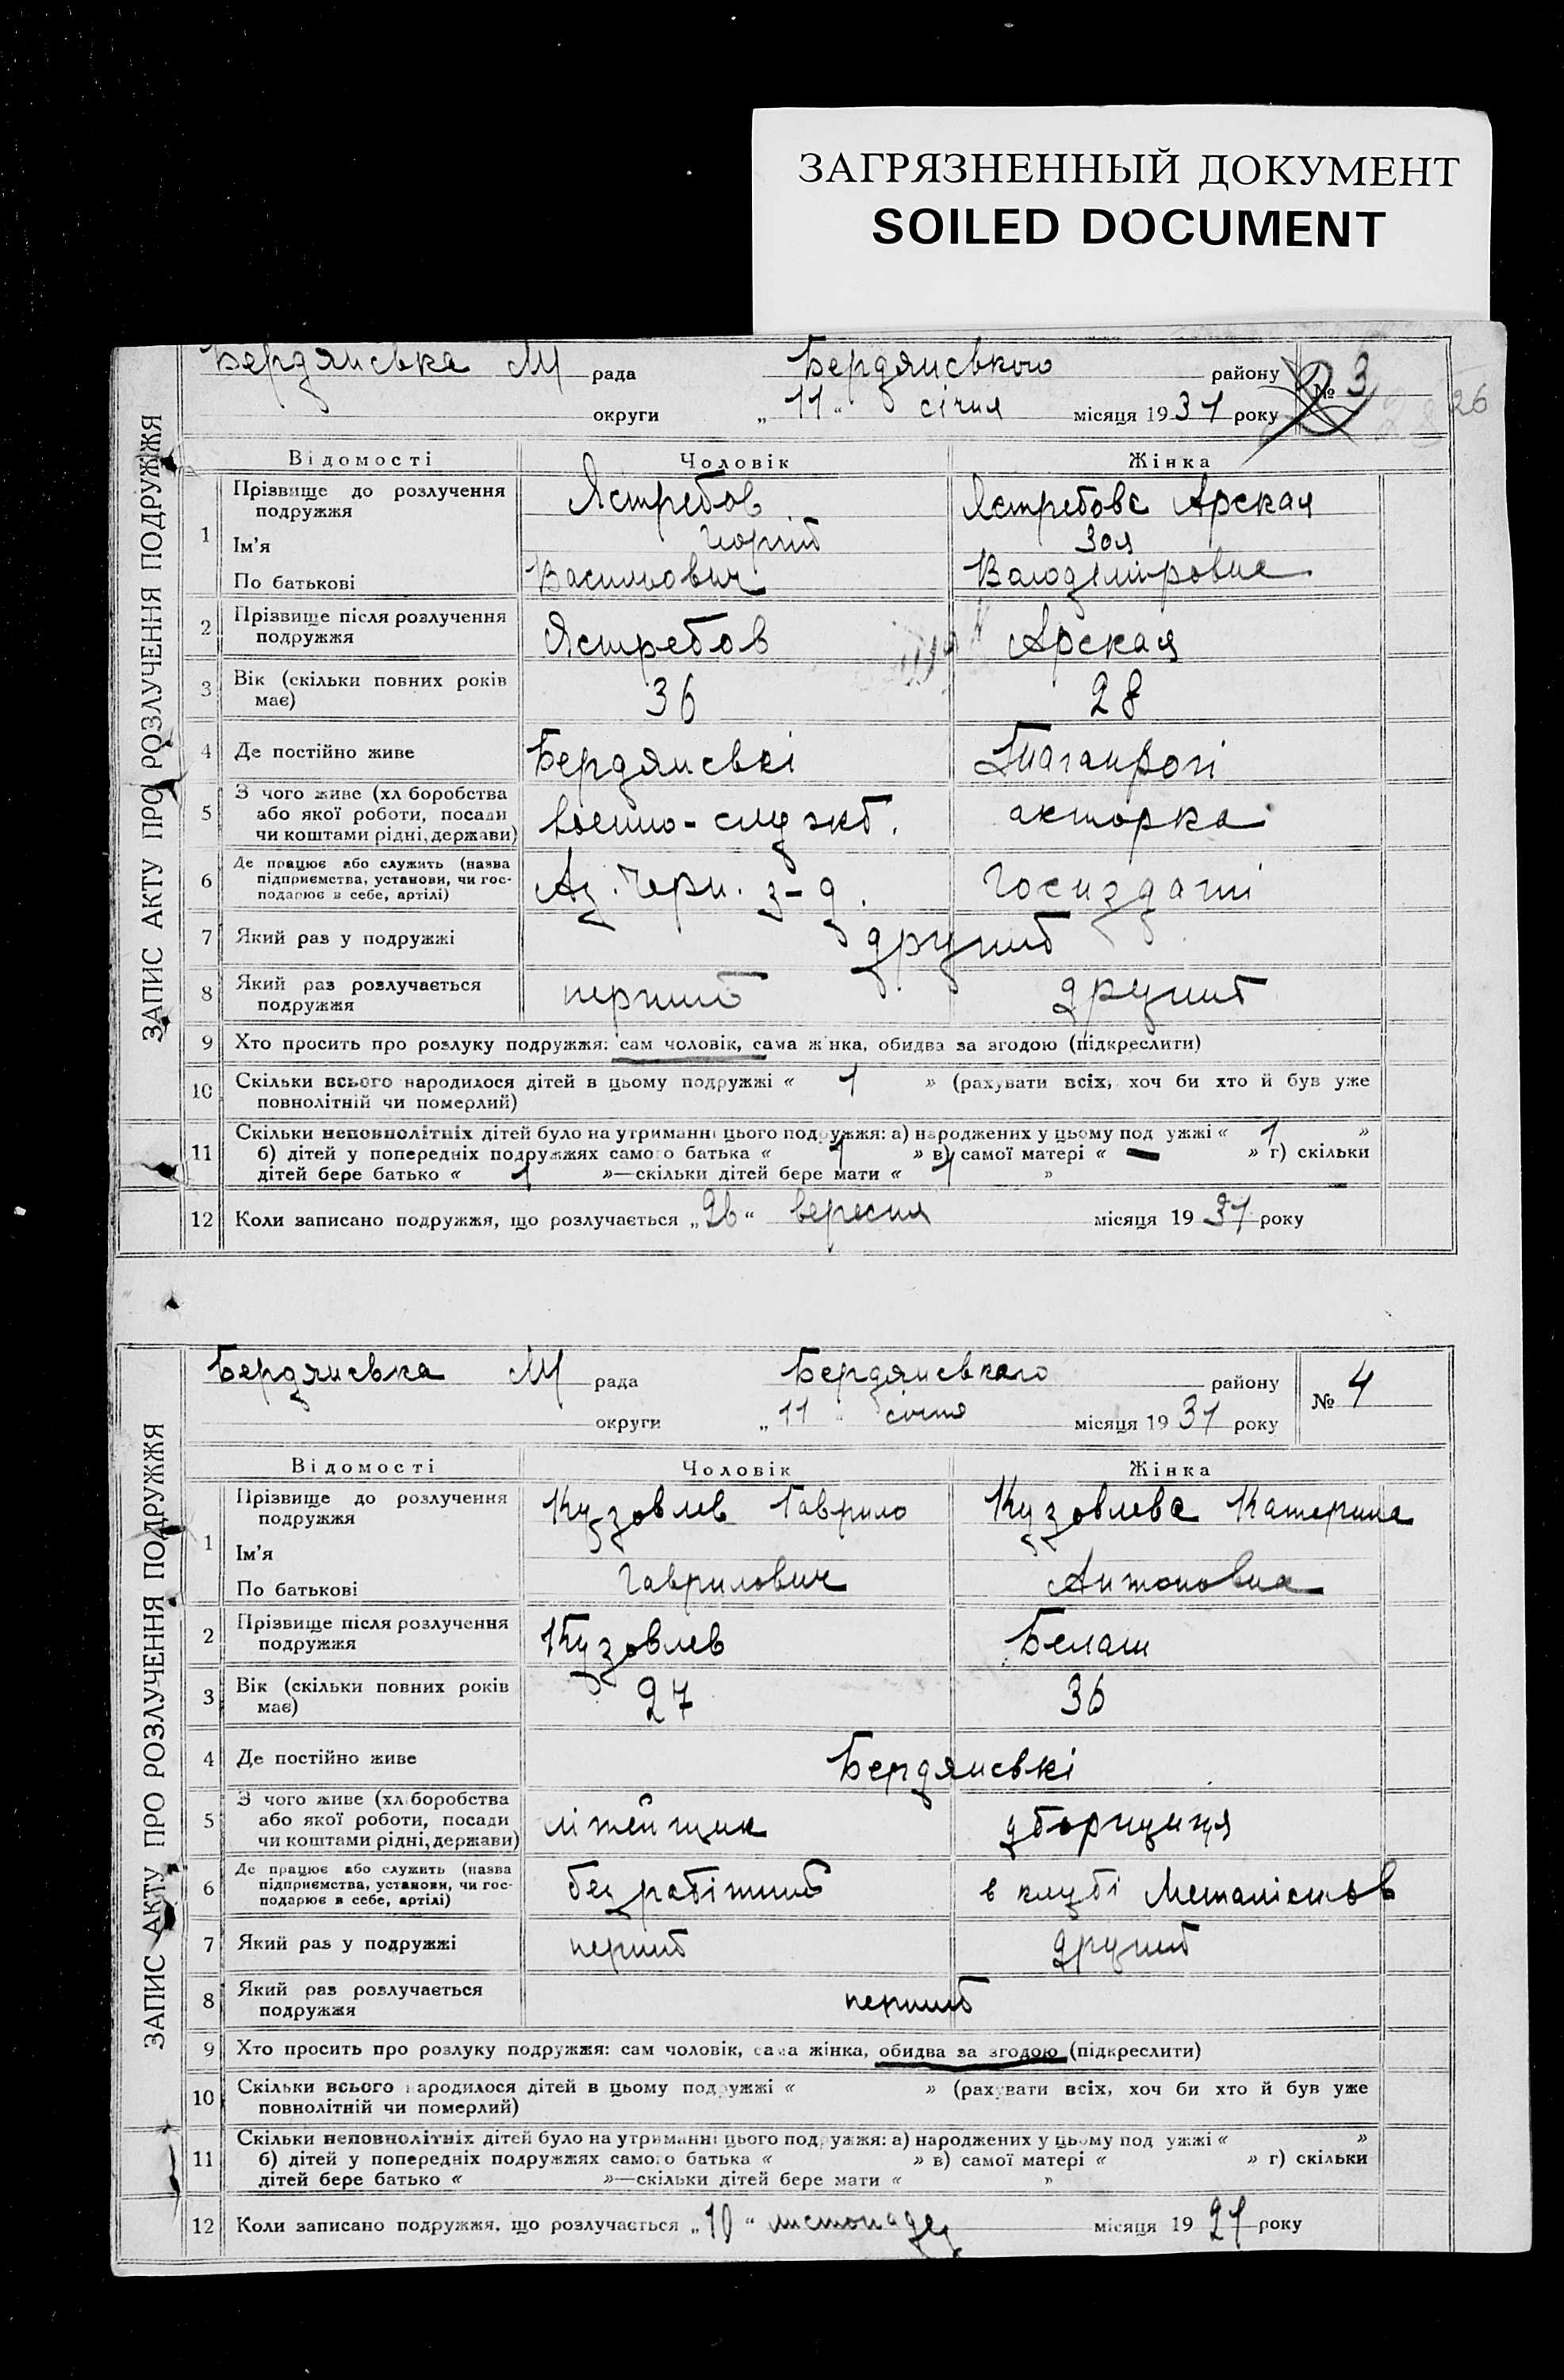 ЗАГРЯЗНЕННЫЙ ДОКУМЕНТ
SOILED DOCUMENT
Бердянська М рада Бердянського району № 3
26
округи „ 11 “ січня місяця 1931 року
ЗАПИС АКТУ ПРО РОЗЛУЧЕННЯ ПОДРУЖЖЯ
Відомості Чоловік Жінка
1 Прізвище до розлучення подружжя Ястребов Ястребова Арская
Ім'я Георгій Зоя
По батькові Васильович Володімировна
2 Прізвище після розлучення подружжя Ястребов Арская
3 Вік (скільки повних років має) 36 28
4 Де постійно живе Бердянські Таганрозі
5 З чого живе (хліборобства
або якої роботи, посади
чи коштами рідні, держави) военно-службб. акторка
6 Де працює або служить (назва
підприємства, установи, чи гос-
подарює в себе, артілі) Аз. Черн. з-д. Госиздаті
7 Який раз у подружжі другий
8 Який раз розлучається
подружжя перший другий
9 Хто просить про розлуку подружжя: сам чоловік, сама жінка, обидва за згодою (підкреслити)
10 Скільки всього народилося дітей в цьому подружжі « 1 » (рахувати всіх, хоч би хто й був уже
повнолітній чи померлий)
11 Скільки неповнолітніх дітей було на утриманні цього подружжя: а) народжених у цьому подружжі « 1 »
б) дітей у попередніх подружжях самого батька « 1 » в) самої матері « — » г) скільки
дітей бере батько « 1 »—скільки дітей бере мати « 1 »
12 Коли записано подружжя, що розлучається „ 26 “ вересня місяця 19 року
Бердянська М рада Бердянського району № 4
округи „ 11 “ січня місяця 1931 року
ЗАПИС АКТУ ПРО РОЗЛУЧЕННЯ ПОДРУЖЖЯ
Відомості Чоловік Жінка
1 Прізвище до розлучення
подружжя Кузовлев Гаврило Кузовлева Катерина
Ім'я
По батькові Гаврилович Антоновна
2 Прізвище після розлучення
подружжя Кузовлев Белаш
3 Вік (скільки повних років
має) 27 36
4 Де постійно живе Бердянські
5 З чого живе (хліборобства
або якої роботи, посади
чи коштами рідні, держави) літейщик уборщиця
6 Де працює або служить (назва
підприємства, установи, чи гос-
подарює в себе, артілі) безработний в клубі Металістов
7 Який раз у подружжі перший другий
8 Який раз розлучається
подружжя перший
9 Хто просить про розлуку подружжя: сам чоловік, сама жінка, обидва за згодою (підкреслити)
10 Скільки всього народилося дітей в цьому подружжі « » (рахувати всіх, хоч би хто й був уже
повнолітній чи померлий)
11 Скільки неповнолітніх дітей було на утриманні цього подружжя: а) народжених у цьому подружжі « »
б) дітей у попередніх подружжях самого батька « » в) самої матері « » г) скільки
дітей бере батько « »—скільки дітей бере мати « »
12 Коли записано подружжя, що розлучається „ 10 “ листопада місяця 19 року